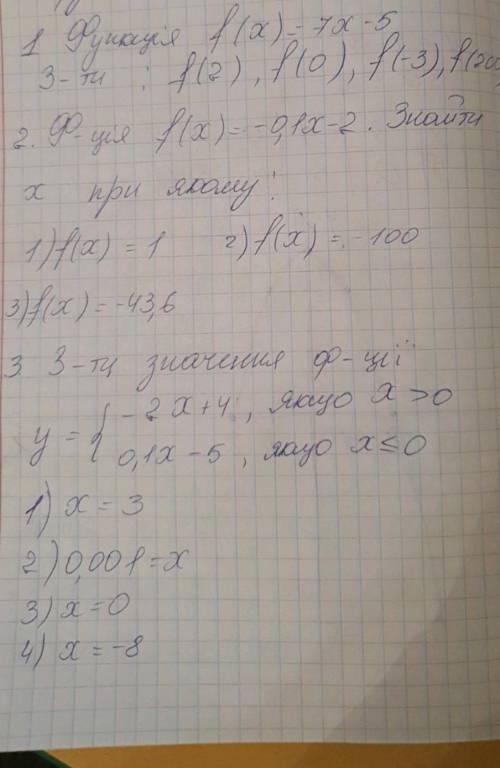 1 Функція f(x)=7x-5
З-ти : f(2), f(0), f(-3), f(20
2. Ф-ція f(x)=-0,1x-2. Знайти
x при якому:
1) f(x) = 1 2) f(x) = -100
3) f(x) = -43,6
3 З-ти значення ф-ції
y = { -2x+4, якщо x>0
0,1x-5, якщо x≤0
1) x = 3
2) 0,001=x
3) x=0
4) x = -8